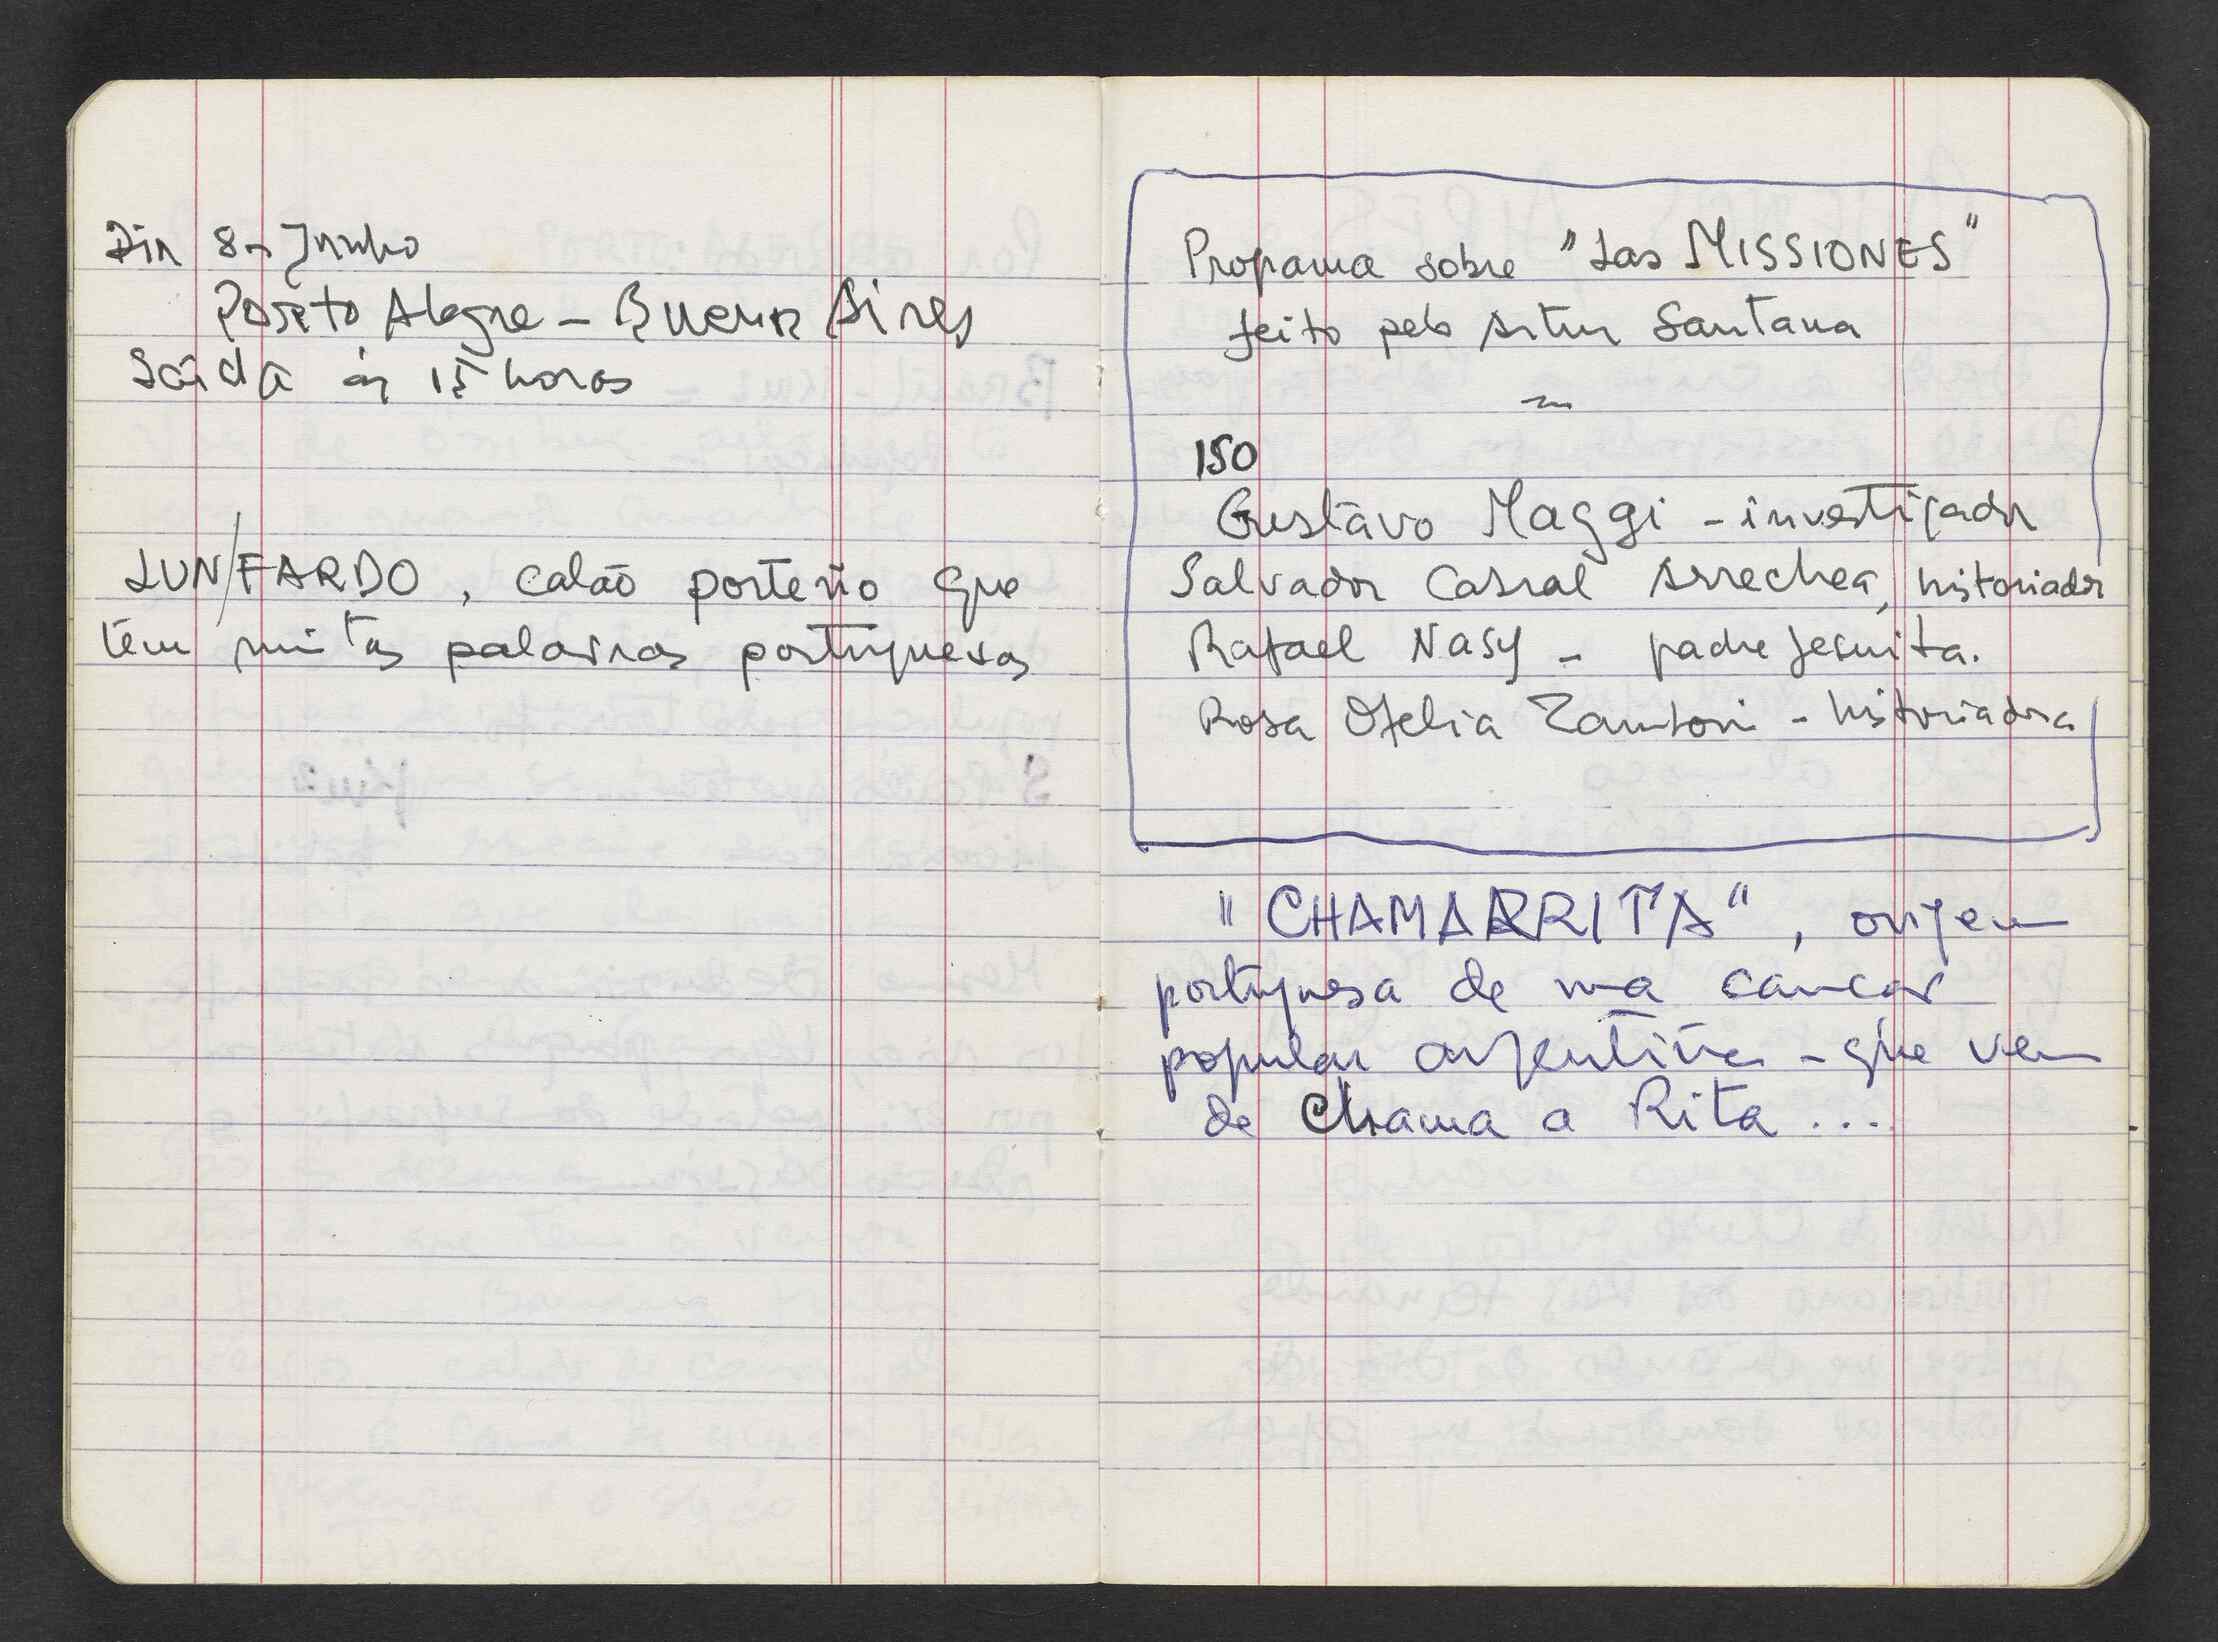 Dia 8 - Junho
Porto Alegre - Buenos Aires
Saída às 15 horas
LUN/FARDO, calão porteño que
têm muitas palavras portuguesas
Programa sobre "Las MISSIONES"
feito pelo Artur Santana
~
150
Gustavo Maggi - investigador
Salvador Cabral Arrechea, historiador
Rafael Nasy - padre jesuita.
Rosa Ofelia Zamboni - historiadora
"CHAMARRITA", origem
portuguesa de uma cancao
popular argentina - que vem
de Chama a Rita ...